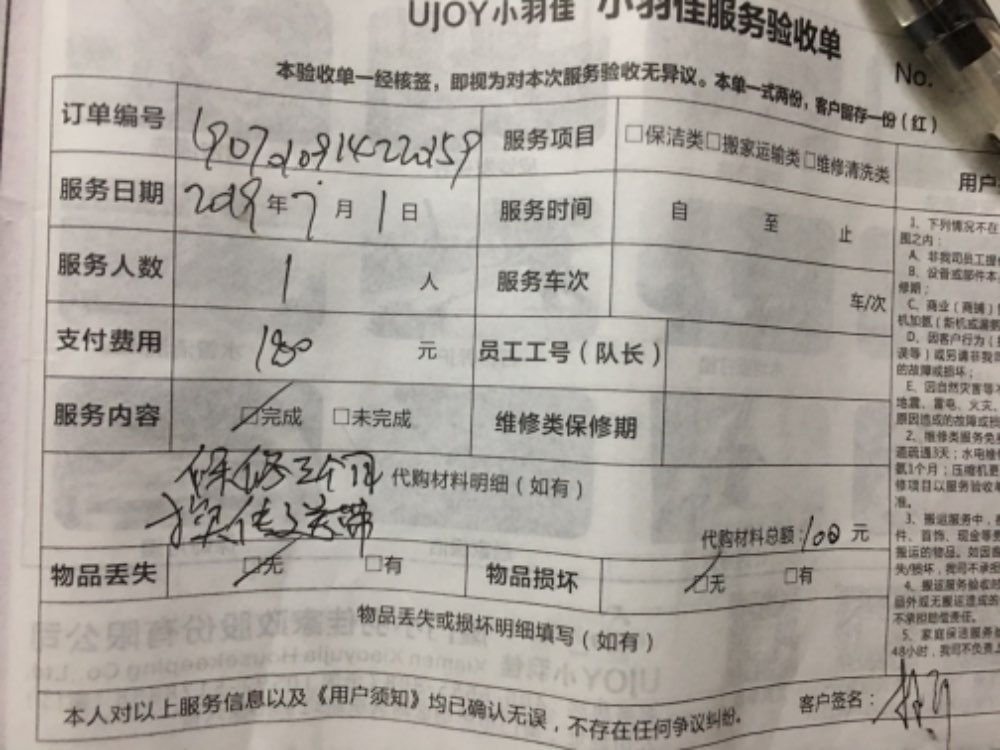 UJOY小羽佳 小羽佳服务验收单
No.
本验收单一经核签，即视为对本次服务验收无异议。本单一式两份，客户留存一份（红）
订单编号 服务项目 □保洁类□搬家运输类□维修清洗类
服务日期 2019年7月1日 服务时间 自 至 止
服务人数 1 人 服务车次 车/次
支付费用 180 元 员工工号（队长）
服务内容 □完成 □未完成 维修类保修期
保修三个月 代购材料明细（如有）
换传送带
代购材料总额：100 元
物品丢失 □无 □有 物品损坏 □无 □有
物品丢失或损坏明细填写（如有）
本人对以上服务信息以及《用户须知》均已确认无误，不存在任何争议纠纷。
客户签名：
用户
1、下列情况不在
围之内：
A、非我司员工提
B、设备或部件本
修期；
C、商业（商铺）
机加氨（新机或漏
D、因客户行为（
误等）或另请非我司
的故障或损坏；
E、因自然灾害等
地震、雷电、火灾、
原因造成的故障或损
2、维修类服务免
道疏通3天；水电维
氨1个月；压缩机
修项目以服务验收单
准。
3、搬运服务中，
件、首饰、现金等
搬运的物品。如因
失/损坏，我司不承担
4、搬运服务验收
品外或无搬运造成的
不承担赔偿责任。
5、家庭保洁服务
48小时，我司不负责